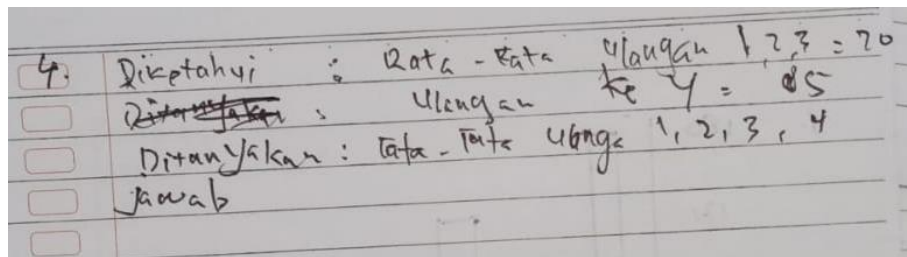 4. Diketahui : Rata-Rata Ulangan 1,2,3 = 70
: Ulangan ke 4 = 85
Ditanyakan : Rata-rata ulanga 1, 2, 3, 4
Jawab